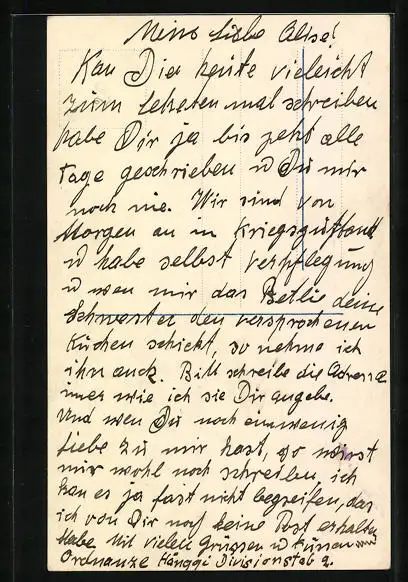 Mine liebe Alise!
Kan Dier heute vieleicht
zum letzten mal schreiben
habe Dir ja bis jetzt alle
tage geschrieben u Du mir
noch nie. Wir sind von
Morgen an in Kriegszustand
u habe selbst verpflegung
u wen mir das Betli deine
Schwester den versprochenen
Kuchen schickt, so nehme ich
ihn auch. Bitt schreibe die Adresse
imer wie ich sie Dir angebe.
Und wen Du noch ein wenig
liebe zu mir hast, so wirst
mir wohl noch schreiben, ich
kan es ja fast nicht begreifen, das
ich von Dir noch keine Post erhalten
habe. Mit vielen Grüssen u Küssen
Ordnanze Hänggi Divisionstab 2.